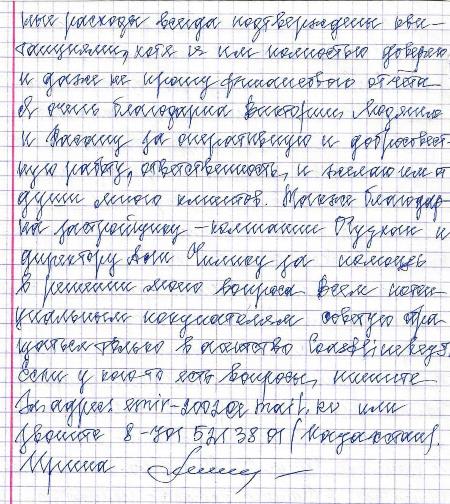 ные расходы всегда подтверждены кви-
танциями, хотя я им полностью доверяю
и даже не прошу финансового отчёта
Я очень благодарна Виктории, Людмиле
и Хасану за оперативную и добросовест-
ную работу, ответственность, и желаю им от
души много клиентов. Также благодар-
на застройщику – компании и
директору за помощь
в решении моего вопроса. Всем потен
циальным покупателям советую обра
щаться только в агентство
Если у кого-то есть вопросы, пишите
на адрес или
звоните 8-701 521 38 01 (Казахстан).
Ирина